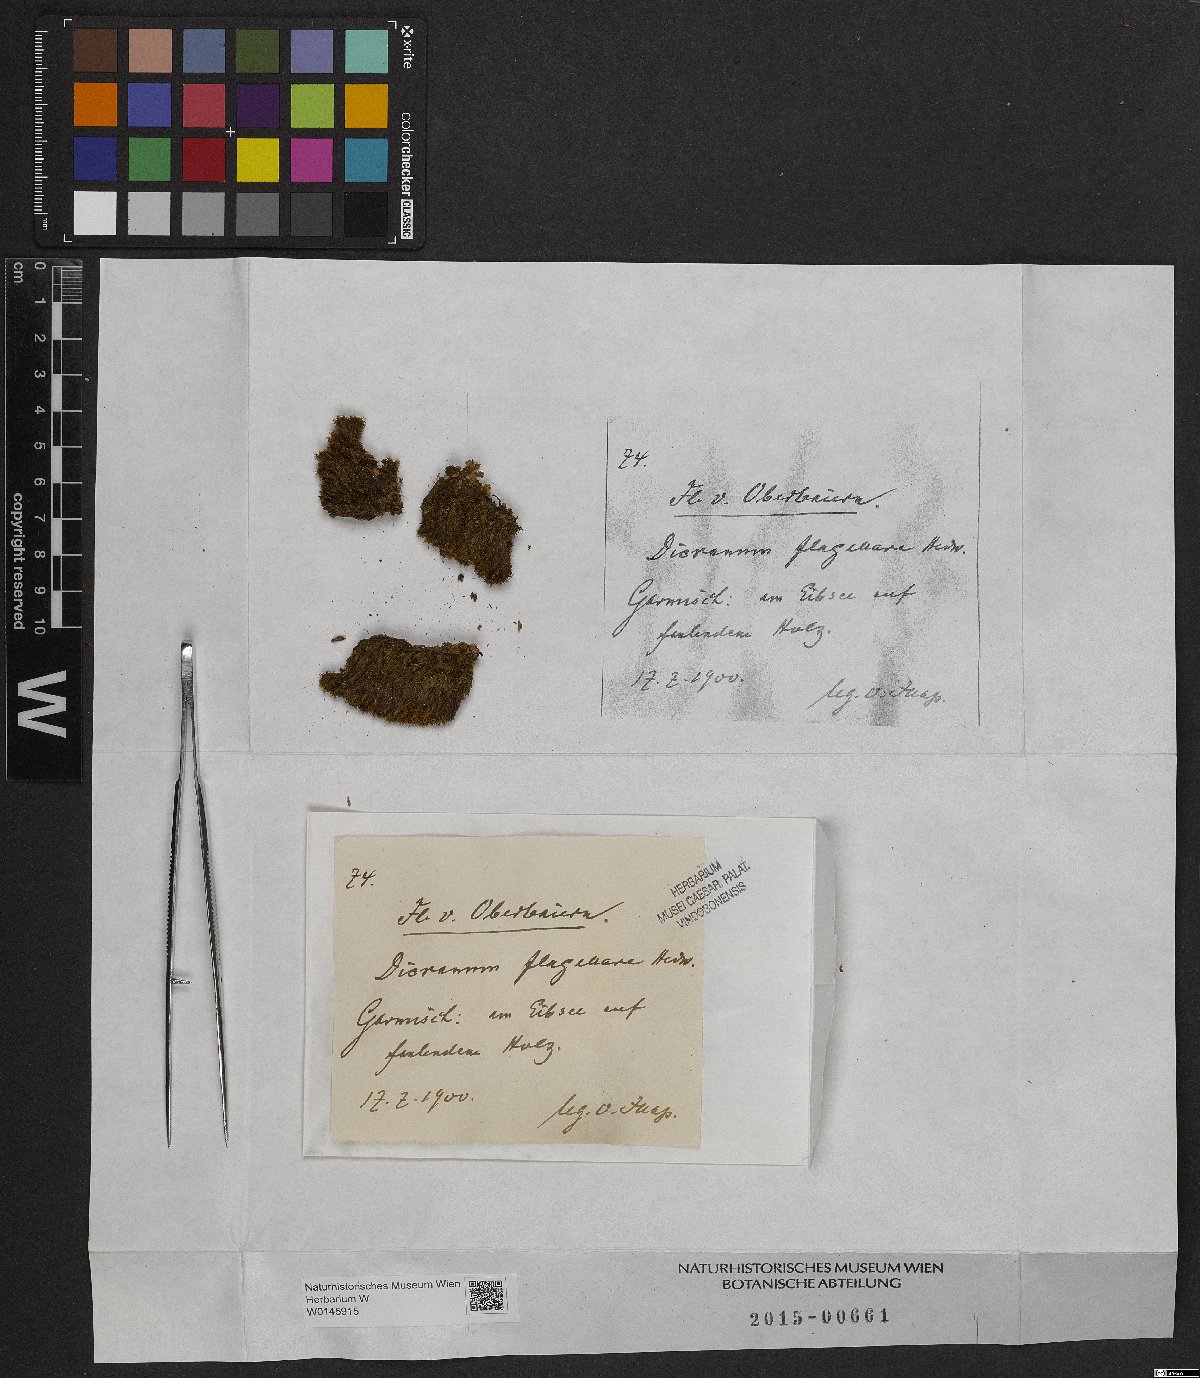 x-rite
colorchecker CLASSIC
mm
0
cm
1
2
3
4
5
6
7
8
9
10
copyright reserved
W
74.
Fl. v. Oberbaiern.
Dicranum flagellare Hedw.
Garmisch: am Eibsee auf
faulendem Holz.
17.7.1900.
leg. O. Jaap.
74.
Fl. v. Oberbaiern.
Dicranum flagellare Hedw.
Garmisch: am Eibsee auf
faulendem Holz.
17.7.1900.
leg. O. Jaap.
HERBARIUM
MUSEI CAESAR. PALAT.
VINDOBONENSIS
Naturhistorisches Museum Wien
Herbarium W
W0145915
NATURHISTORISCHES MUSEUM WIEN
BOTANISCHE ABTEILUNG
2015-00661